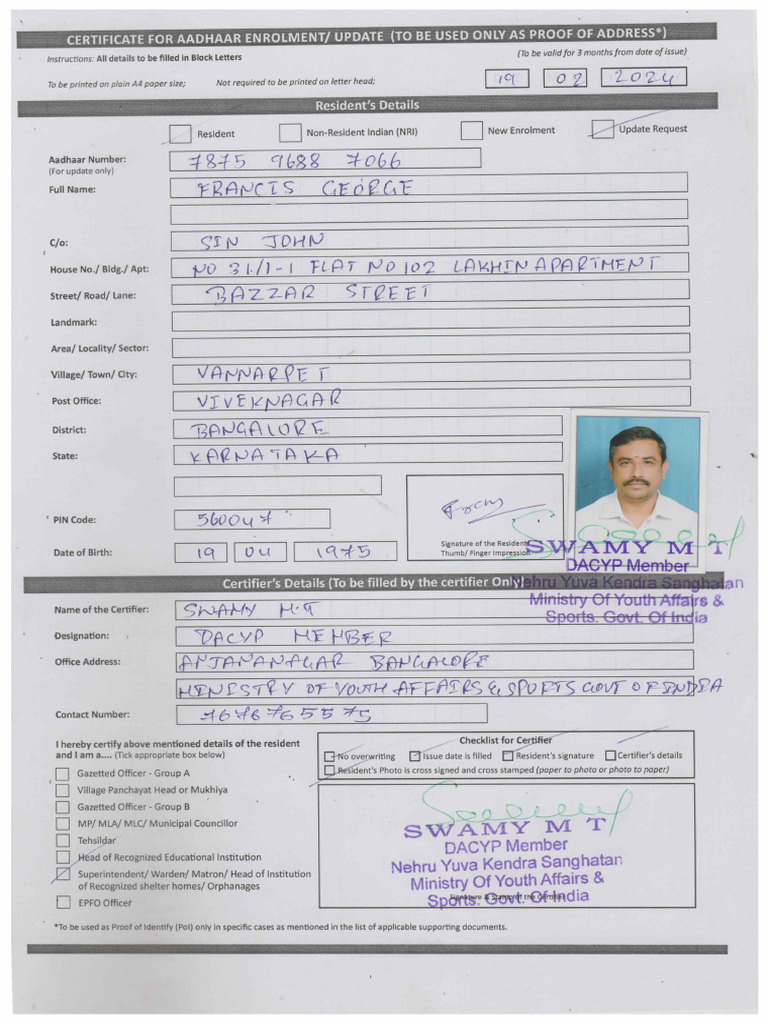 CERTIFICATE FOR AADHAAR ENROLMENT/ UPDATE (TO BE USED ONLY AS PROOF OF ADDRESS*)
Instructions: All details to be filled in Block Letters
(To be valid for 3 months from date of issue)
To be printed on plain A4 paper size; Not required to be printed on letter head;
19 02 2024
Resident's Details
Resident Non-Resident Indian (NRI) New Enrolment Update Request
Aadhaar Number: 7875 9688 7066
(For update only)
Full Name: FRANCIS GEORGE
C/o: SIN JOHN
House No./ Bldg./ Apt: NO 31/1-1 FLAT NO 102 LAKHIN APARTMENT
Street/ Road/ Lane: BAZZAR STREET
Landmark:
Area/ Locality/ Sector:
Village/ Town/ City: VANNARPET
Post Office: VIVEKNAGAR
District: BANGALORE
State: KARNATAKA
PIN Code: 560047
Signature of the Resident
Thumb/ Finger Impression
Date of Birth: 19 04 1975
SWAMY M T
DACYP Member
Nehru Yuva Kendra Sanghatan
Ministry Of Youth Affairs &
Sports. Govt. Of India
Certifier's Details (To be filled by the certifier Only)
Name of the Certifier: SWAMY M.T
Designation: DACYP MEMBER
Office Address: ANJANANAGAR BANGALORE
MINISTRY OF YOUTH AFFAIRS & SPORTS GOVT OF INDIA
Contact Number: 7676765575
I hereby certify above mentioned details of the resident
and I am a.... (Tick appropriate box below)
Gazetted Officer - Group A
Village Panchayat Head or Mukhiya
Gazetted Officer - Group B
MP/ MLA/ MLC/ Municipal Councillor
Tehsildar
Head of Recognized Educational Institution
Superintendent/ Warden/ Matron/ Head of Institution
of Recognized shelter homes/ Orphanages
EPFO Officer
Checklist for Certifier
No overwriting Issue date is filled Resident's signature Certifier's details
Resident's Photo is cross signed and cross stamped (paper to photo or photo to paper)
SWAMY M T
DACYP Member
Nehru Yuva Kendra Sanghatan
Ministry Of Youth Affairs &
Sports. Govt. Of India
Signature & Stamp of the Certifier
*To be used as Proof of Identify (PoI) only in specific cases as mentioned in the list of applicable supporting documents.